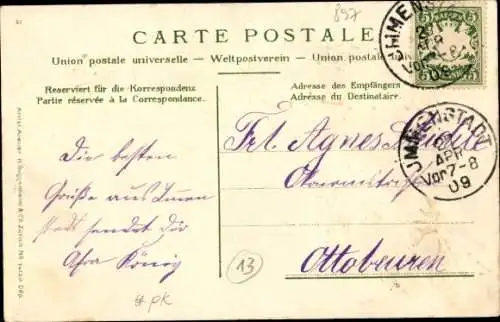 897
CARTE POSTALE
Union postale universelle — Weltpostverein — Union postale
Reserviert für die Korrespondenz
Partie réservée à la Correspondance.
Adresse des Empfängers
Adresse du Destinataire.
IMMENSTADT
APR
Vor 7-8
09
Frl. Agnes
Ottobeuren
Die besten
Grüße aus Immen
stadt sendet dir
Afra König
13
#pk